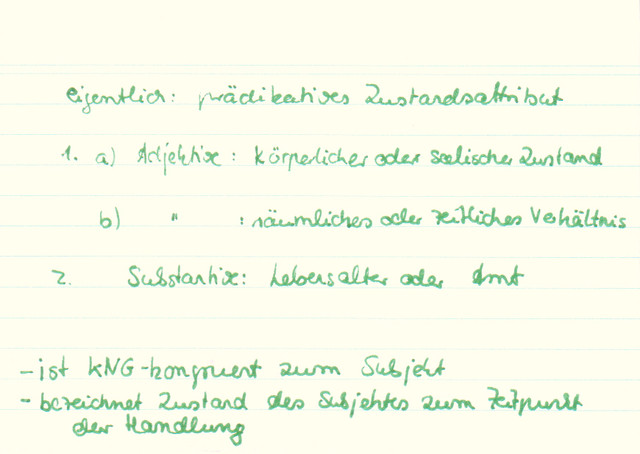 eigentlich: prädikatives Zustandsattribut
1. a) Adjektive: körperlicher oder seelischer Zustand
b) " : räumliches oder zeitliches Verhältnis
2. Substantive: Lebensalter oder Amt
- ist KNG-kongruent zum Subjekt
- bezeichnet Zustand des Subjektes zum Zeitpunkt
der Handlung